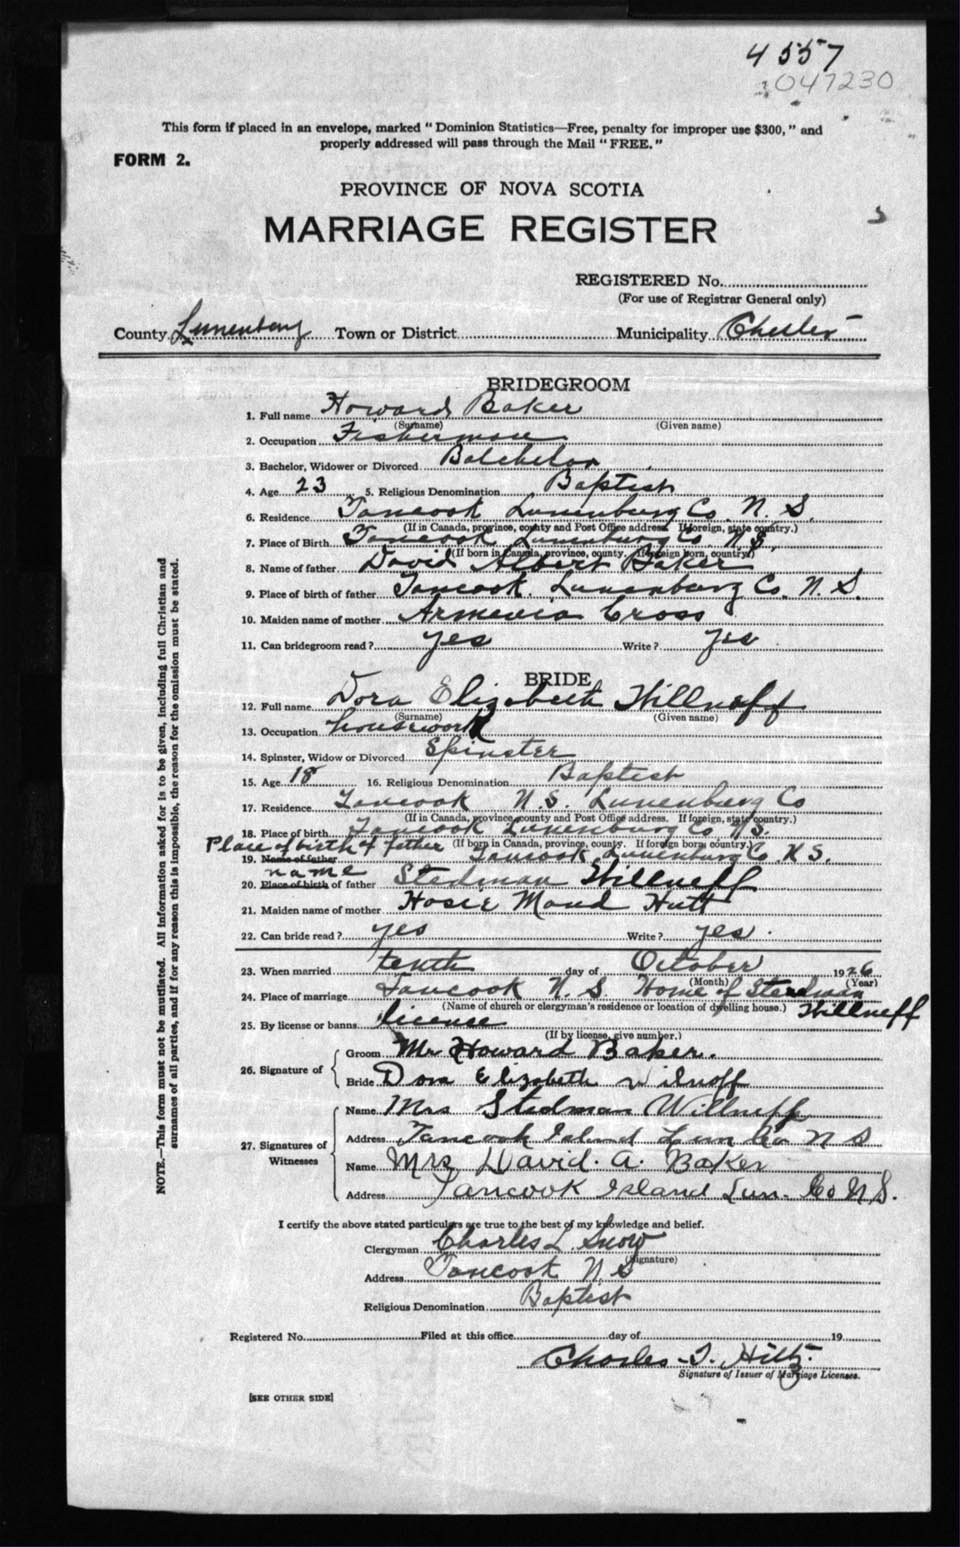 4557
047230
This form if placed in an envelope, marked "Dominion Statistics—Free, penalty for improper use $300," and
properly addressed will pass through the Mail "FREE."
FORM 2.
PROVINCE OF NOVA SCOTIA
MARRIAGE REGISTER
REGISTERED No.
(For use of Registrar General only)
County Lunenburg Town or District Municipality Chester
BRIDEGROOM
1. Full name Howard Baker
(Surname) (Given name)
2. Occupation Fisherman
3. Bachelor, Widower or Divorced Batchelor
4. Age 23 5. Religious Denomination Baptist
6. Residence Tancook Lunenburg Co. N. S.
(If in Canada, province, county and Post Office address. If foreign, state country.)
7. Place of Birth Tancook Lunenburg Co. N. S.
(If born in Canada, province, county. If foreign born, country.)
8. Name of father David Albert Baker
9. Place of birth of father Tancook. Lunenburg Co. N. S.
10. Maiden name of mother Armenia Cross
11. Can bridegroom read? yes Write? yes
BRIDE
12. Full name Dora Elizabeth Willneff
(Surname) (Given name)
13. Occupation housework
14. Spinster, Widow or Divorced Spinster
15. Age 18 16. Religious Denomination Baptist
17. Residence Tancook N. S. Lunenburg Co
(If in Canada, province, county and Post Office address. If foreign, state country.)
18. Place of birth Tancook Lunenburg Co N. S.
(If born in Canada, province, county. If foreign born, country.)
Place of birth of father
19. Name of father Tancook Lunenburg Co. N. S.
name
20. Place of birth of father Stedman Willneff
21. Maiden name of mother Hosie Maud Hutt
22. Can bride read? yes Write? yes.
23. When married tenth day of October 1926
(Month) (Year)
24. Place of marriage Tancook N. S Home of Stedman
(Name of church or clergyman's residence or location of dwelling house.) Willneff
25. By license or banns license
(If by license, give number.)
26. Signature of
Groom Mr Howard Baker.
Bride Dora Elizabeth Wilnoff
27. Signatures of Witnesses
Name Mrs Stedman Willneff
Address Tancook Island Lun Co N S
Name Mrs David. A. Baker
Address Tancook Island Lun. Co N. S.
I certify the above stated particulars are true to the best of my knowledge and belief.
Clergyman Charles L. Snow
(Signature)
Address Tancook N S
Religious Denomination Baptist
Registered No. Filed at this office day of 19
Charles T. Hiltz.
Signature of Issuer of Marriage Licenses.
[SEE OTHER SIDE]
NOTE.—This form must not be mutilated. All information asked for is to be given, including full Christian and
surnames of all parties, and if for any reason this is impossible, the reason for the omission must be stated.